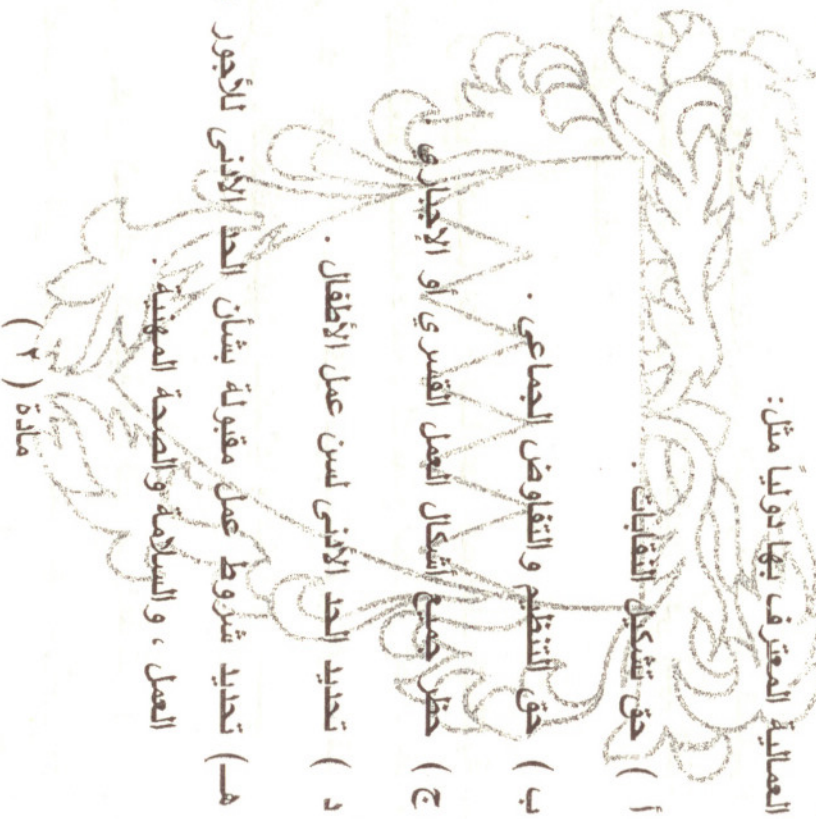 العمالية المعترف بها دولياً مثل:
أ ) حق تشكيل النقابات .
ب ) حق التنظيم والتفاوض الجماعي .
ج ) حظر جميع اشكال العمل القسري او الإجباري .
د ) تحديد الحد الادنى لسن عمل الأطفال .
هـ) تحديد شروط عمل مقبولة بشأن الحد الأدنى للأجور
العمل ، والسلامة والصحة المهنية .
مادة (٢)